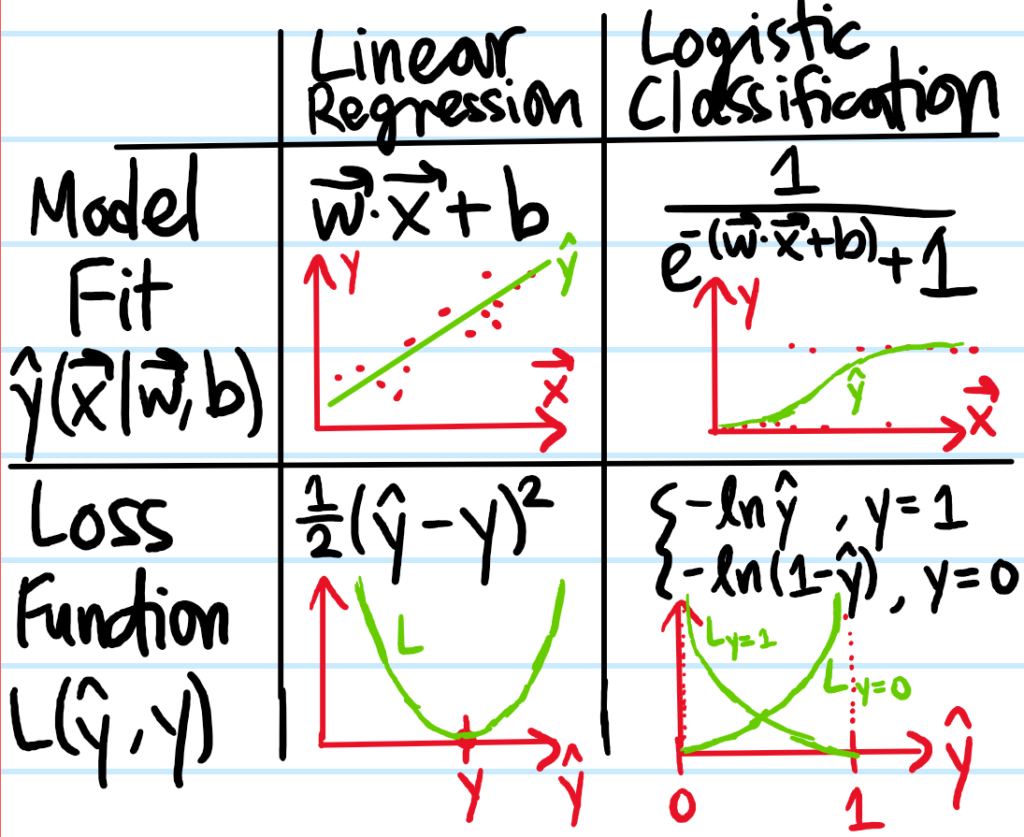 Linear
Regression
Logistic
Classification
Model
Fit
ŷ(x⃗|w⃗,b)
w⃗·x⃗+b
y
ŷ
x⃗
1
e^-(w⃗·x⃗+b)+1
y
ŷ
x⃗
Loss
Function
L(ŷ,y)
1/2(ŷ-y)²
L
y
ŷ
{-ln ŷ , y=1
{-ln(1-ŷ), y=0
L y=1
L y=0
0
1
ŷ